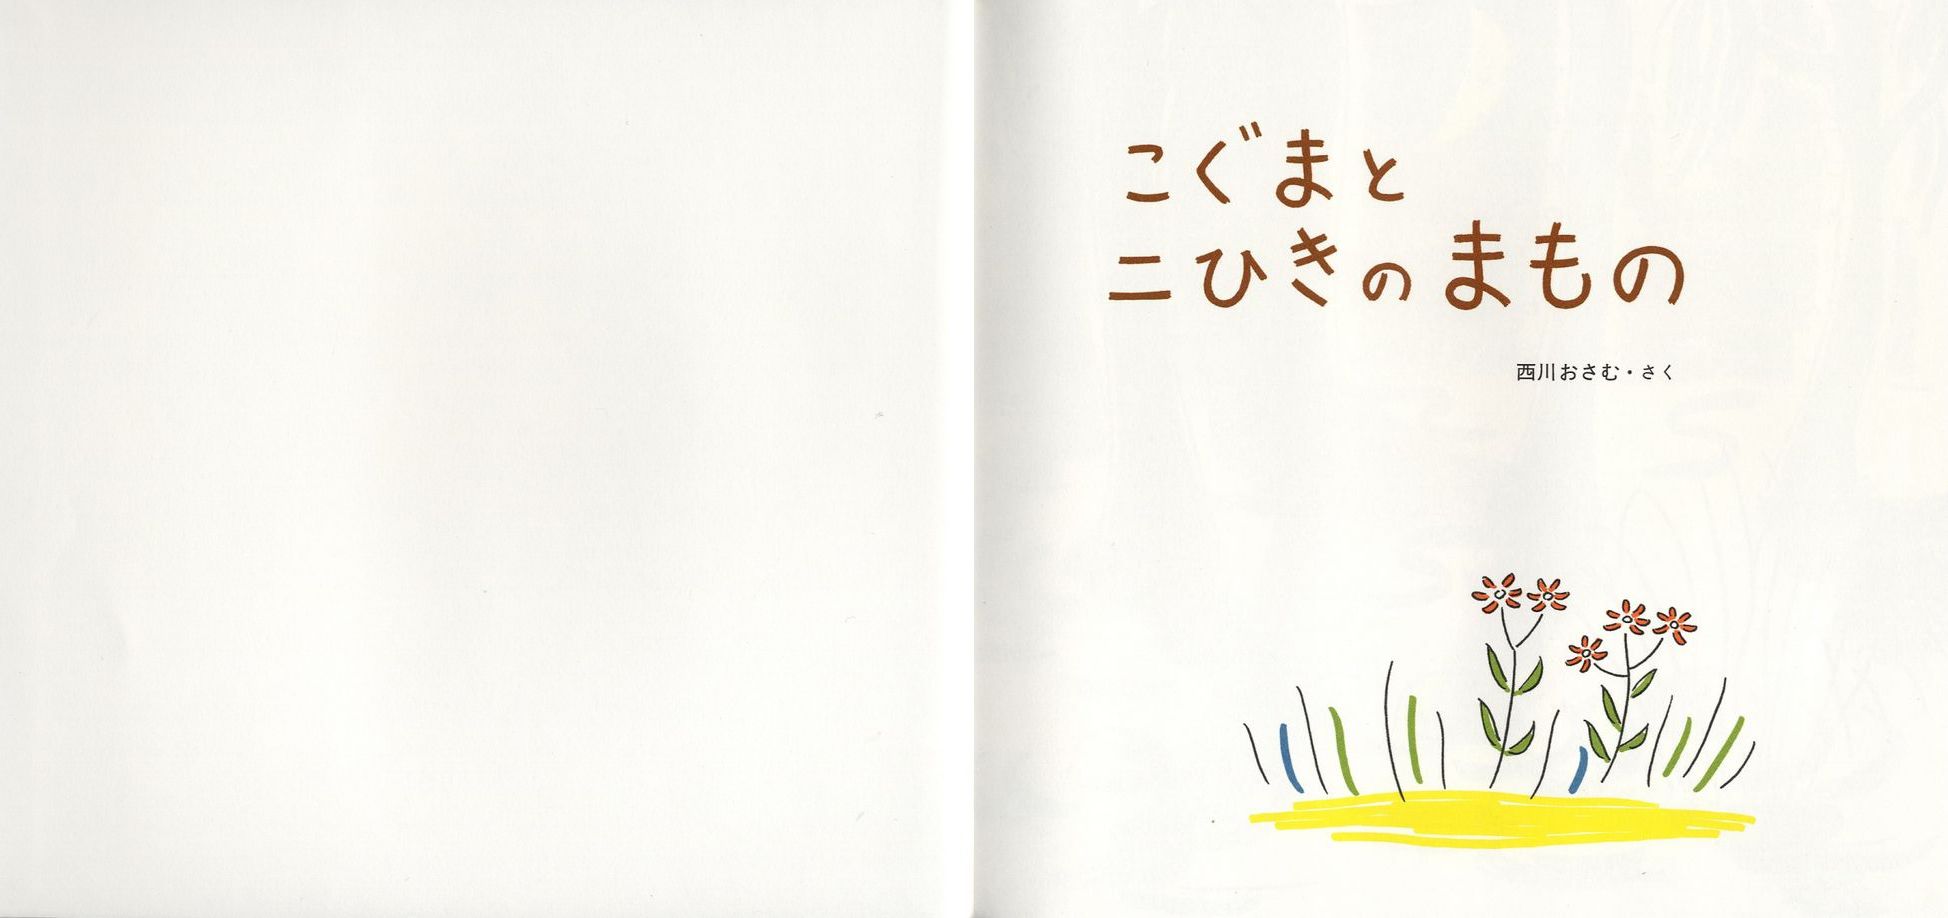 こぐまと
二ひきのまもの
西川おさむ・さく